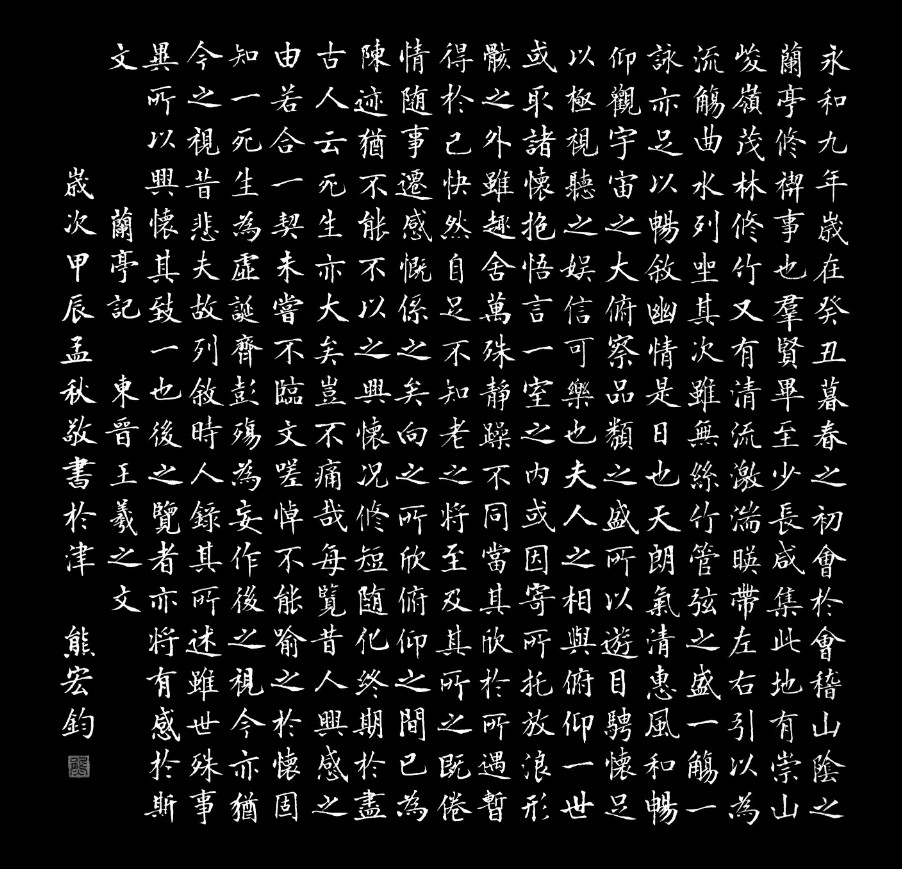 永和九年歲在癸丑暮春之初會於會稽山陰之
蘭亭修禊事也羣賢畢至少長咸集此地有崇山
峻嶺茂林修竹又有清流激湍暎帶左右引以為
流觴曲水列坐其次雖無絲竹管弦之盛一觴一
詠亦足以暢敘幽情是日也天朗氣清惠風和暢
仰觀宇宙之大俯察品類之盛所以遊目騁懷足
以極視聽之娛信可樂也夫人之相與俯仰一世
或取諸懷抱悟言一室之內或因寄所托放浪形
骸之外雖趣舍萬殊靜躁不同當其欣於所遇暫
得於己快然自足不知老之將至及其所之既倦
情隨事遷感慨係之矣向之所欣俯仰之間已為
陳迹猶不能不以之興懷况修短隨化終期於盡
古人云死生亦大矣豈不痛哉每覽昔人興感之
由若合一契未嘗不臨文嗟悼不能喻之於懷固
知一死生為虛誕齊彭殤為妄作後之視今亦猶
今之視昔悲夫故列敘時人錄其所述雖世殊事
異所以興懷其致一也後之覽者亦將有感於斯
文 蘭亭記 東晉王羲之文
歲次甲辰孟秋敬書於津 熊宏鈞